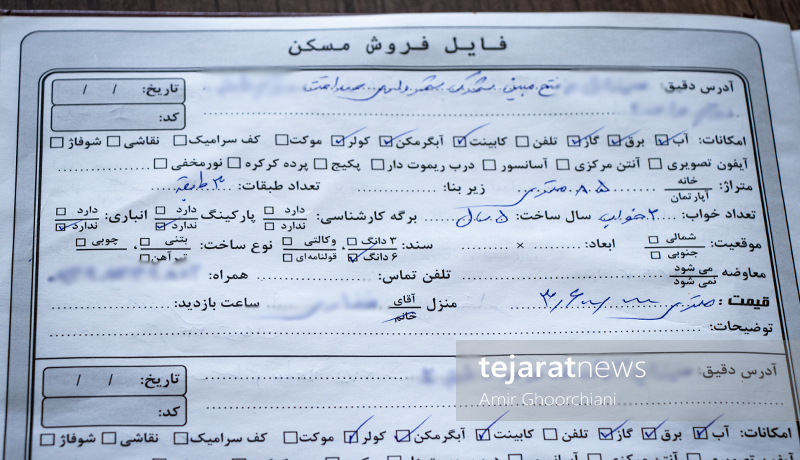 فایل فروش مسکن
آدرس دقیق:
تاریخ: / /
کد:
امکانات: آب ☑ برق ☑ گاز ☑ تلفن ☐ کابینت ☑ آبگرمکن ☑ کولر ☑ موکت ☐ کف سرامیک ☐ نقاشی ☐ شوفاژ ☐
آیفون تصویری ☐ آنتن مرکزی ☐ آسانسور ☐ درب ریموت دار ☐ پکیج ☐ پرده کرکره ☐ نورمخفی ☐
متراژ: خانه آپارتمان ۸۵ متری زیر بنا: تعداد طبقات: ۳ طبقه
تعداد خواب: ۲ خواب سال ساخت: ۵ سال برگه کارشناسی: دارد ☐ ندارد ☐ پارکینگ دارد ☐ ندارد ☑ انباری: دارد ☐ ندارد ☑
موقعیت: شمالی ☐ جنوبی ☐ ابعاد: × سند: ۳ دانگ ☐ ۶ دانگ ☑ وکالتی ☐ قولنامه‌ای ☐ نوع ساخت: بتنی ☐ تیرآهن ☐ چوبی ☐
معاوضه می شود نمی شود تلفن تماس: همراه:
قیمت: متری منزل آقای خانم ساعت بازدید:
توضیحات:
tejaratnews
Amir Ghoorchiani
آدرس دقیق:
تاریخ: / /
کد:
امکانات: آب ☑ برق ☑ گاز ☑ تلفن ☐ کابینت ☑ آبگرمکن ☑ کولر ☑ موکت ☐ کف سرامیک ☐ نقاشی ☐ شوفاژ ☐